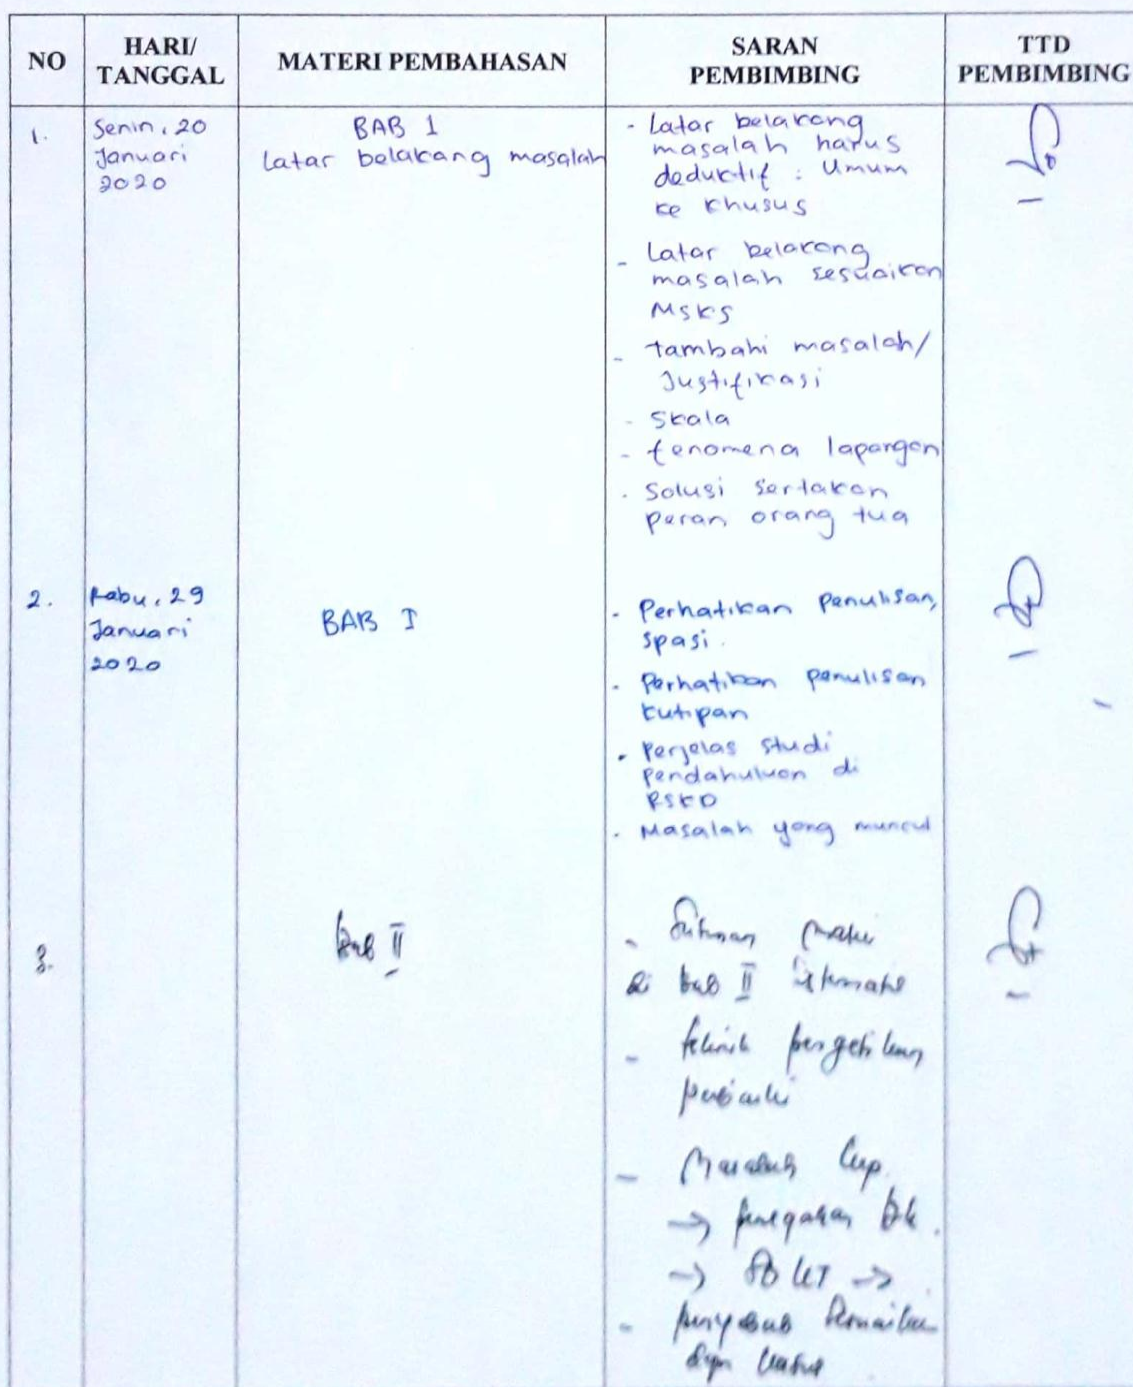 NO
HARI/
TANGGAL
MATERI PEMBAHASAN
SARAN
PEMBIMBING
TTD
PEMBIMBING
1.
Senin, 20
Januari
2020
BAB 1
Latar belakang masalah
- Latar belakang
masalah harus
deduktif : Umum
ke khusus
- Latar belakang
masalah sesuaikan
MSKS
- tambahi masalah/
Justifikasi
- Skala
- fenomena lapangan
- Solusi sertakan
peran orang tua
2.
Rabu, 29
Januari
2020
BAB I
- Perhatikan penulisan,
spasi.
- Perhatikan penulisan
kutipan
- Perjelas studi
pendahuluan di
RSKD
- Masalah yang muncul
3.
Bab II
-
di bab II
- teknik pengetikan
perbaiki
- Masalah kep.
→ penegakan Dk.
→ →
- penyebab